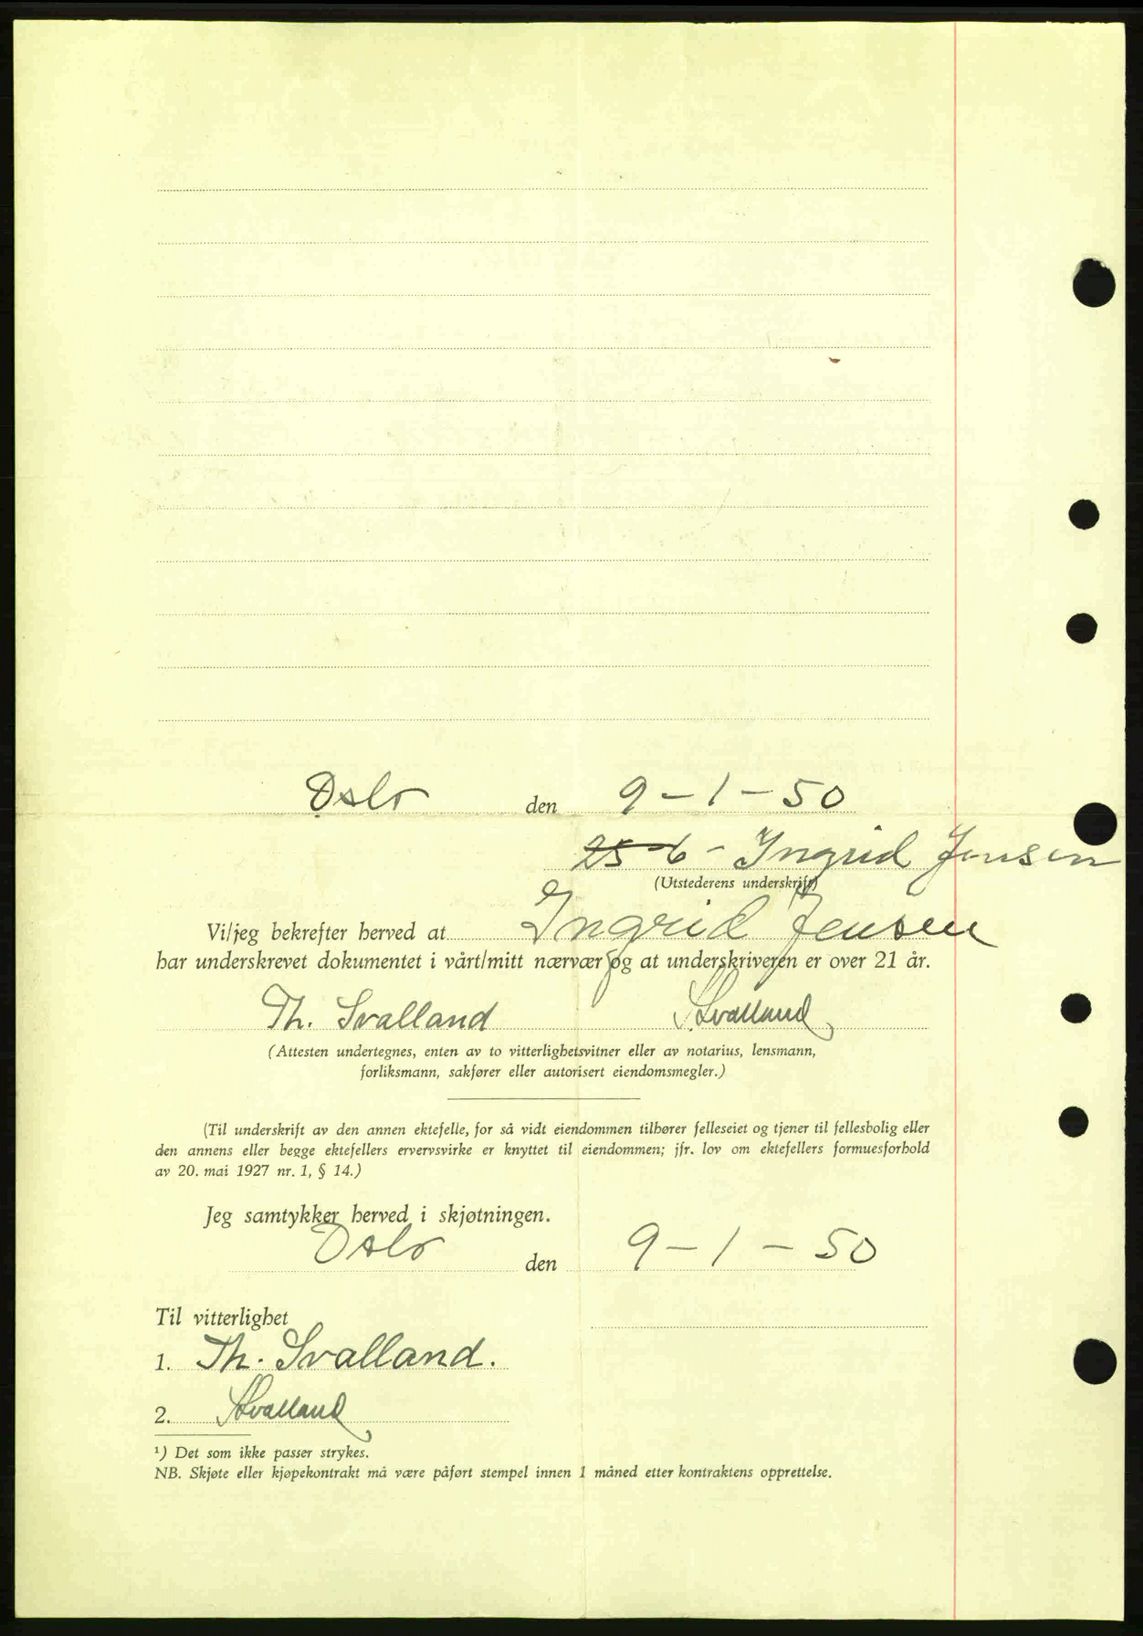 Oslo den 9-1-50
25-6- Ingrid Jensen
(Utstederens underskrift)
Vi/jeg bekrefter herved at Ingrid Jensen
har underskrevet dokumentet i vårt/mitt nærvær og at underskriveren er over 21 år.
Th. Svalland S. Svalland
(Attesten undertegnes, enten av to vitterlighetsvitner eller av notarius, lensmann,
forliksmann, sakfører eller autorisert eiendomsmegler.)
(Til underskrift av den annen ektefelle, for så vidt eiendommen tilhører felleseiet og tjener til fellesbolig eller
den annens eller begge ektefellers ervervsvirke er knyttet til eiendommen; jfr. lov om ektefellers formuesforhold
av 20. mai 1927 nr. 1, § 14.)
Jeg samtykker herved i skjøtningen.
Oslo den 9-1-50
Til vitterlighet
1. Th. Svalland.
2. Svalland
¹) Det som ikke passer strykes.
NB. Skjøte eller kjøpekontrakt må være påført stempel innen 1 måned etter kontraktens opprettelse.